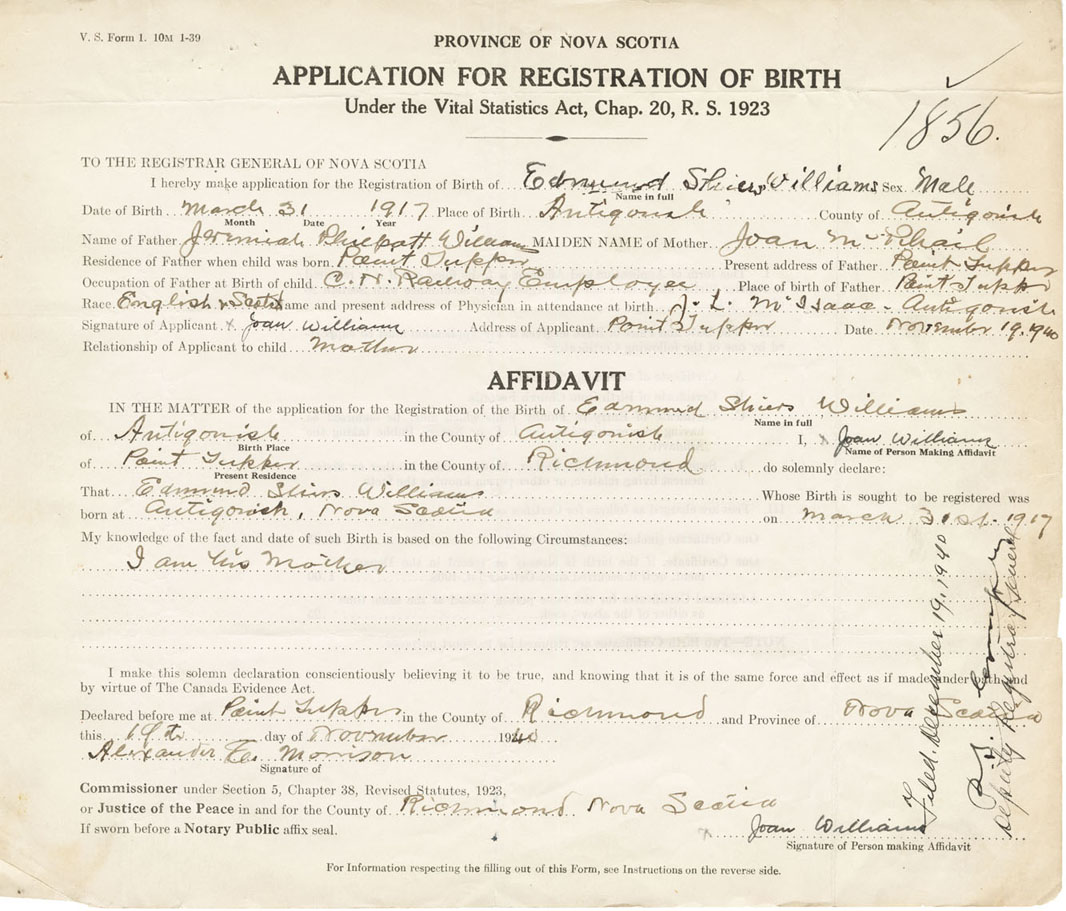 V. S. Form 1. 10M 1-39
PROVINCE OF NOVA SCOTIA
APPLICATION FOR REGISTRATION OF BIRTH
Under the Vital Statistics Act, Chap. 20, R. S. 1923
1856.
TO THE REGISTRAR GENERAL OF NOVA SCOTIA
I hereby make application for the Registration of Birth of Edmund Shiers Williams Sex Male
Name in full
Date of Birth March 31 1917 Place of Birth Antigonish County of Antigonish
Month Date Year
Name of Father Jeremiah Philpott Williams MAIDEN NAME of Mother Joan McPhail
Residence of Father when child was born Point Tupper Present address of Father Point Tupper
Occupation of Father at Birth of child C. N. Railway Employee Place of birth of Father Point Tupper
Race English & Scotch Name and present address of Physician in attendance at birth J. L. McIsaac - Antigonish
Signature of Applicant x Joan Williams Address of Applicant Point Tupper Date November 19, 1940
Relationship of Applicant to child Mother
AFFIDAVIT
IN THE MATTER of the application for the Registration of the Birth of Edmund Shiers Williams
Name in full
of Antigonish in the County of Antigonish I, x Joan Williams
Birth Place Name of Person Making Affidavit
of Point Tupper in the County of Richmond do solemnly declare:
Present Residence
That Edmund Shiers Williams Whose Birth is sought to be registered was
born at Antigonish, Nova Scotia on March 31st. 1917
My knowledge of the fact and date of such Birth is based on the following Circumstances:
I am his Mother
I make this solemn declaration conscientiously believing it to be true, and knowing that it is of the same force and effect as if made under oath and
by virtue of The Canada Evidence Act.
Declared before me at Point Tupper in the County of Richmond and Province of Nova Scotia
this 19th day of November 1940
Alexander C. Morrison
Signature of
Commissioner under Section 5, Chapter 38, Revised Statutes, 1923,
or Justice of the Peace in and for the County of Richmond Nova Scotia
If sworn before a Notary Public affix seal.
x Joan Williams
Signature of Person making Affidavit
For Information respecting the filling out of this Form, see Instructions on the reverse side.
Filed. December 19, 1940
Deputy Registrar General